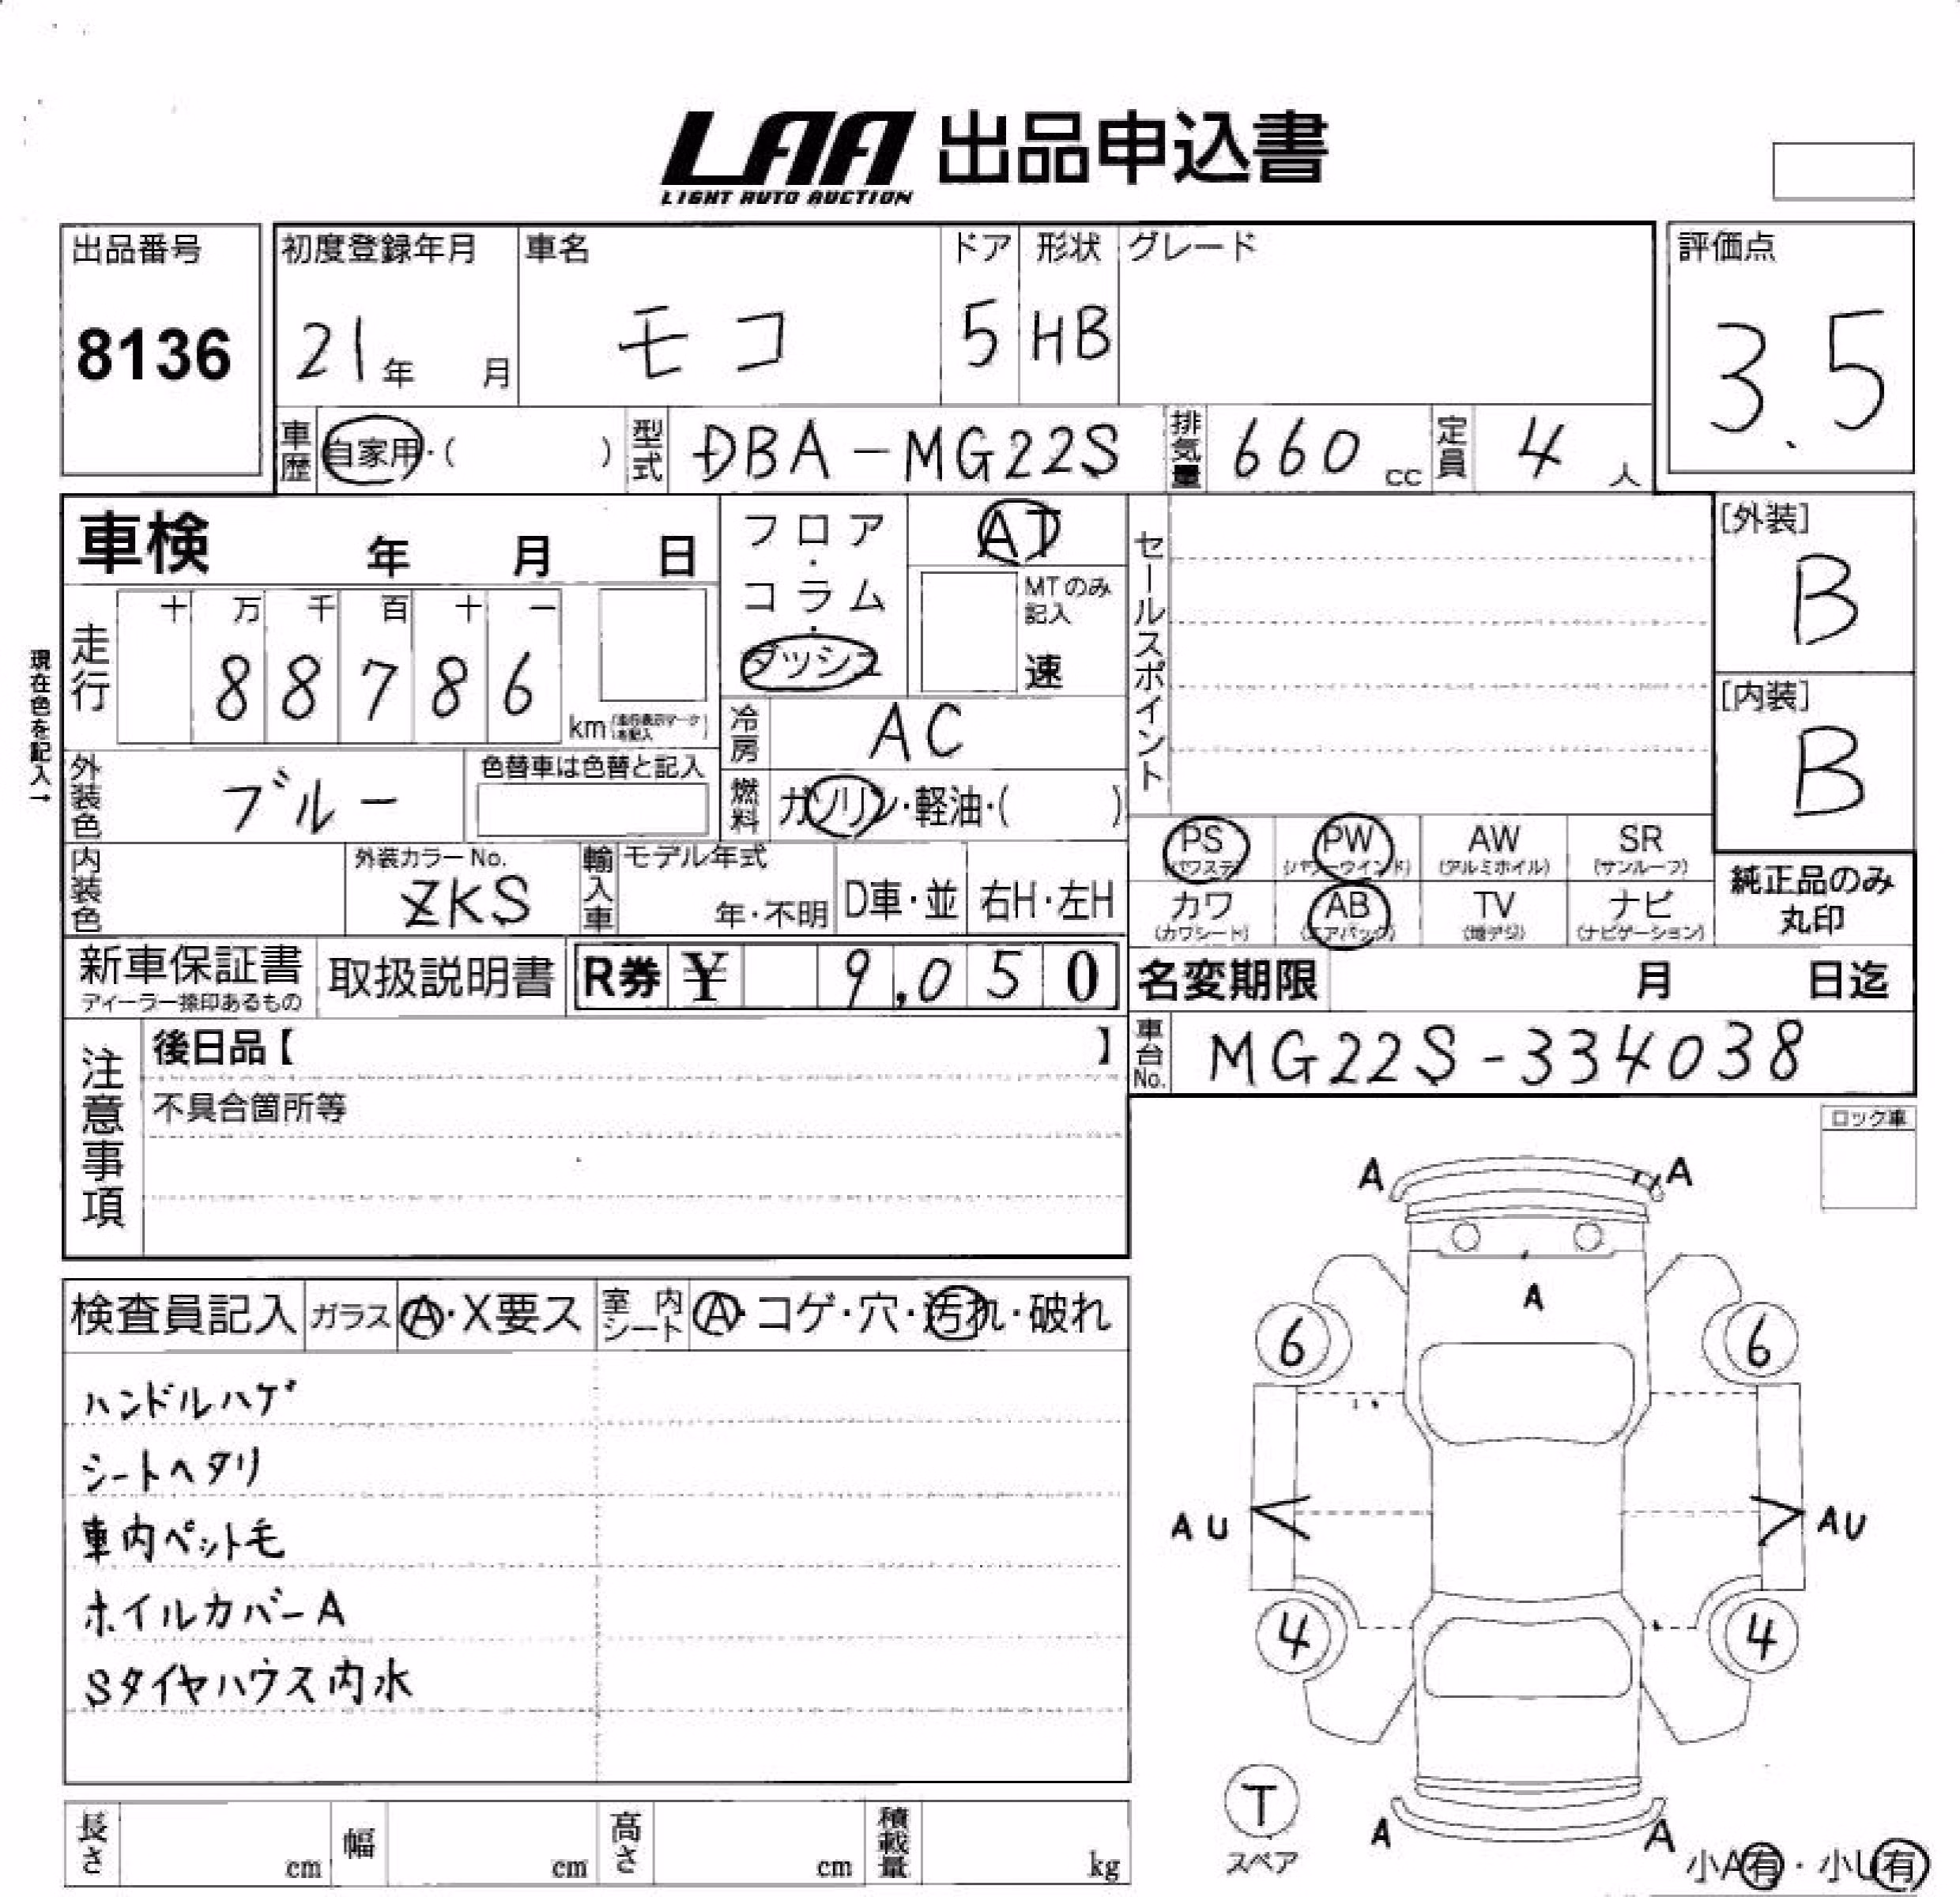 LAA 出品申込書
LIGHT AUTO AUCTION
出品番号
8136
初度登録年月
21年 月
車名
モコ
ドア
5
形状
HB
グレード
評価点
3.5
車歴 自家用・( )
型式 DBA-MG22S
排気量 660 cc
定員 4 人
車検 年 月 日
フロア・コラム・ダッシュ
AT
MTのみ記入
速
セールスポイント
[外装]
B
[内装]
B
現在色を記入→
走行
十 万 千 百 十 一
8 8 7 8 6
km
冷房 AC
外装色 ブルー
色替車は色替と記入
燃料 ガソリン・軽油・( )
内装色
外装カラーNo.
ZKS
輸入車
モデル年式
年・不明
D車・並
右H・左H
PS (パワステ)
PW (パワーウインド)
AW (アルミホイル)
SR (サンルーフ)
カワ (カワシート)
AB (エアバック)
TV (地デジ)
ナビ (ナビゲーション)
純正品のみ
丸印
新車保証書
ディーラー捺印あるもの
取扱説明書
R券 ¥ 9,050
名変期限 月 日迄
車台No. MG22S-334038
注意事項
後日品【 】
不具合箇所等
ロック車
検査員記入
ガラス A・X要ス
室内シート A・コゲ・穴・汚れ・破れ
ハンドルハゲ
シートヘタリ
車内ペット毛
ホイルカバーA
Sタイヤハウス内水
A A
A
6 6
AU AU
4 4
T
スペア
A A
小A有・小U有
長さ cm
幅 cm
高さ cm
積載量 kg